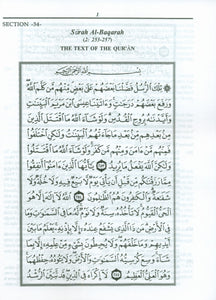 1
SECTION -34-
Sūrah Al-Baqarah
(2: 253-257)
THE TEXT OF THE QUR'ĀN
بِسْمِ ٱللَّهِ ٱلرَّحْمَٰنِ ٱلرَّحِيمِ
تِلْكَ ٱلرُّسُلُ فَضَّلْنَا بَعْضَهُمْ عَلَىٰ بَعْضٍ مِّنْهُم مَّن كَلَّمَ ٱللَّهُ
وَرَفَعَ بَعْضَهُمْ دَرَجَٰتٍ وَءَاتَيْنَا عِيسَى ٱبْنَ مَرْيَمَ ٱلْبَيِّنَٰتِ
وَأَيَّدْنَٰهُ بِرُوحِ ٱلْقُدُسِ وَلَوْ شَآءَ ٱللَّهُ مَا ٱقْتَتَلَ ٱلَّذِينَ
مِنۢ بَعْدِهِم مِّنۢ بَعْدِ مَا جَآءَتْهُمُ ٱلْبَيِّنَٰتُ وَلَٰكِنِ ٱخْتَلَفُوا۟
فَمِنْهُم مَّنْ ءَامَنَ وَمِنْهُم مَّن كَفَرَ وَلَوْ شَآءَ ٱللَّهُ مَا ٱقْتَتَلُوا۟
وَلَٰكِنَّ ٱللَّهَ يَفْعَلُ مَا يُرِيدُ ٢٥٣ يَٰٓأَيُّهَا ٱلَّذِينَ ءَامَنُوٓا۟ أَنفِقُوا۟
مِمَّا رَزَقْنَٰكُم مِّن قَبْلِ أَن يَأْتِىَ يَوْمٌ لَّا بَيْعٌ فِيهِ وَلَا خُلَّةٌ وَلَا
شَفَٰعَةٌ وَٱلْكَٰفِرُونَ هُمُ ٱلظَّٰلِمُونَ ٢٥٤ ٱللَّهُ لَآ إِلَٰهَ إِلَّا هُوَ
ٱلْحَىُّ ٱلْقَيُّومُ لَا تَأْخُذُهُۥ سِنَةٌ وَلَا نَوْمٌ لَّهُۥ مَا فِى ٱلسَّمَٰوَٰتِ وَمَا
فِى ٱلْأَرْضِ مَن ذَا ٱلَّذِى يَشْفَعُ عِندَهُۥٓ إِلَّا بِإِذْنِهِۦ يَعْلَمُ مَا بَيْنَ
أَيْدِيهِمْ وَمَا خَلْفَهُمْ وَلَا يُحِيطُونَ بِشَىْءٍ مِّنْ عِلْمِهِۦٓ إِلَّا بِمَا
شَآءَ وَسِعَ كُرْسِيُّهُ ٱلسَّمَٰوَٰتِ وَٱلْأَرْضَ وَلَا يَـُٔودُهُۥ حِفْظُهُمَا
وَهُوَ ٱلْعَلِىُّ ٱلْعَظِيمُ ٢٥٥ لَآ إِكْرَاهَ فِى ٱلدِّينِ قَد تَّبَيَّنَ ٱلرُّشْدُ